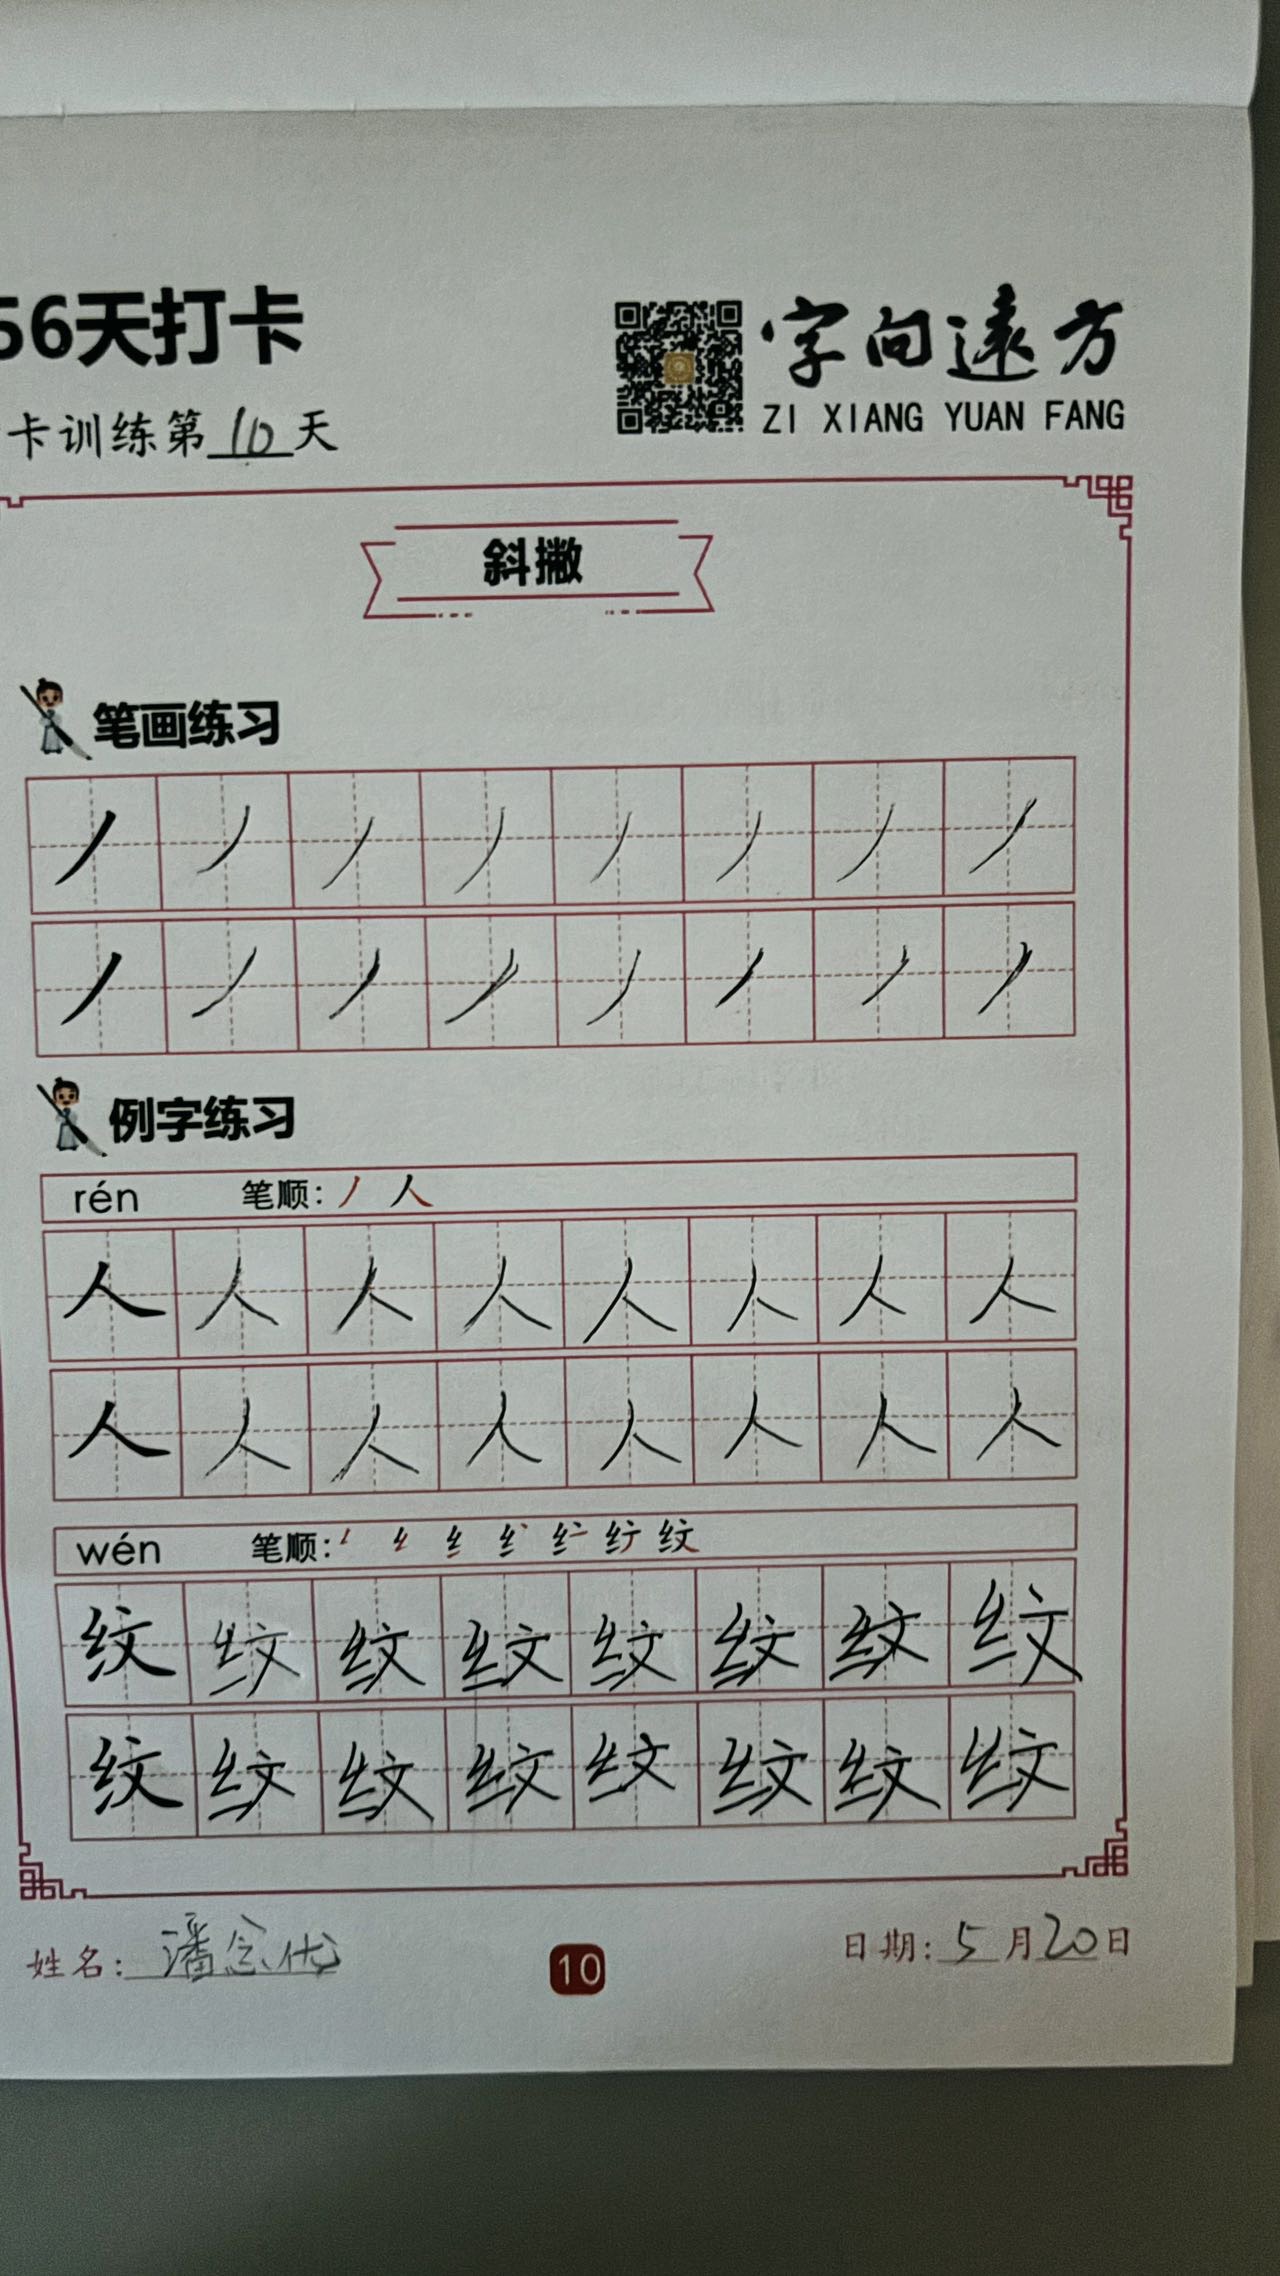 56天打卡
字向遠方
ZI XIANG YUAN FANG
卡训练第10天
斜撇
笔画练习
丿 丿 丿 丿 丿 丿 丿 丿
丿 丿 丿 丿 丿 丿 丿 丿
例字练习
rén 笔顺: 丿 人
人 人 人 人 人 人 人 人
人 人 人 人 人 人 人 人
wén 笔顺: 纹
纹 纹 纹 纹 纹 纹 纹 纹
纹 纹 纹 纹 纹 纹 纹 纹
姓名: 潘念优
10
日期: 5月20日